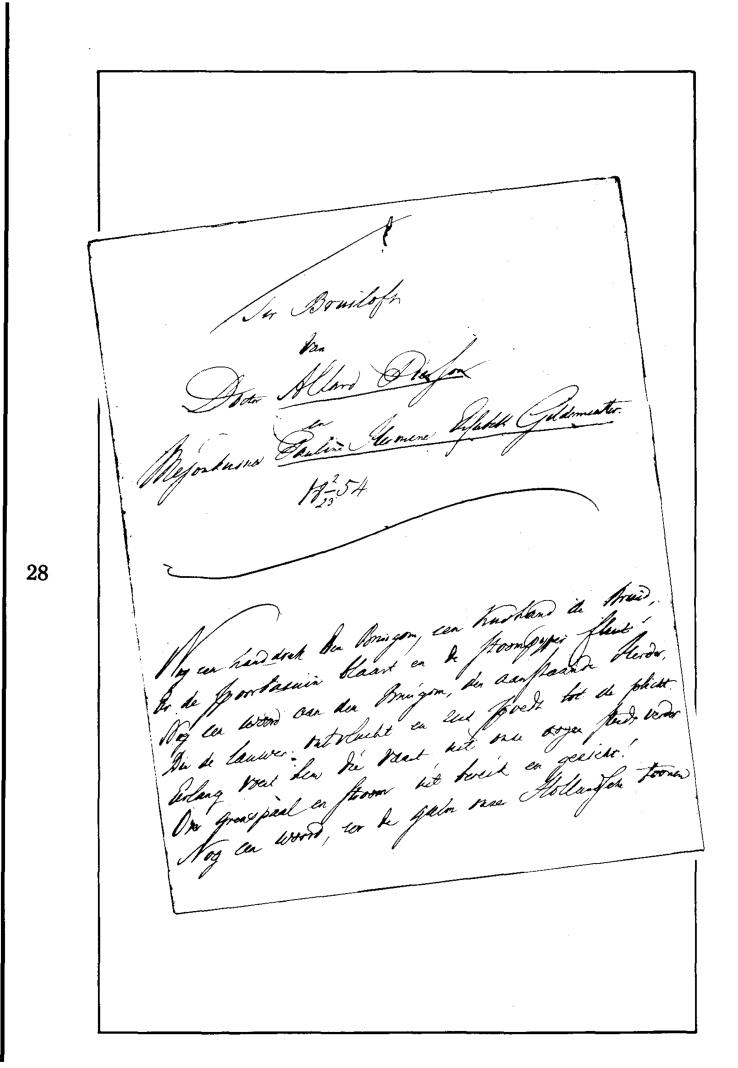 Ter Bruiloft
van
Doctor Allard Pierson
en
Mejonkvrouw Pauline Hermine Elisabeth Gildemeester.
18 2/23 54
28
Nog een handdruk den Bruigom, een kushand de Bruid,
Eer de spoorbasuin blaast en de stoompyper fluit!
Nog een woord aan den Bruigom, den aanstaande Herder,
Die de lauwer ontvlucht en zich spoedt tot de plicht.
Eerlang voert hem die vaart uit onze oogen steeds verder
Over grenspaal en stroom uit bereik en gezicht!
Nog een woord, eer de galm onzer Hollandsche toonen